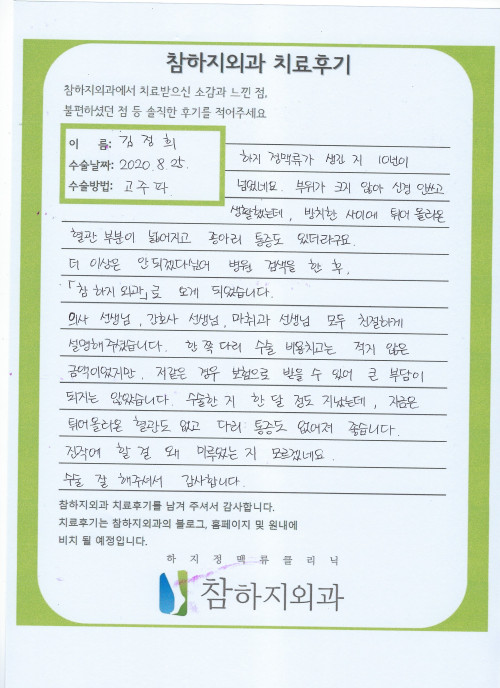 참하지외과 치료후기
참하지외과에서 치료받으신 소감과 느낀 점,
불편하셨던 점 등 솔직한 후기를 적어주세요
이 름: 김정희
수술날짜: 2020.8.25.
수술방법: 고주파
하지 정맥류가 생긴 지 10년이
넘었네요. 부위가 크지 않아 신경 안쓰고
생활했는데, 방치한 사이에 튀어 올라온
혈관 부분이 넓어지고 종아리 통증도 있더라구요.
더 이상은 안 되겠다싶어 병원 검색을 한 후,
「참 하지 외과」로 오게 되었습니다.
의사 선생님, 간호사 선생님, 마취과 선생님 모두 친절하게
설명해주셨습니다. 한 쪽 다리 수술 비용치고는 적지 않은
금액이었지만, 저같은 경우 보험으로 받을 수 있어 큰 부담이
되지는 않았습니다. 수술한 지 한 달 정도 지났는데, 지금은
튀어올라온 혈관도 없고 다리 통증도 없어져 좋습니다.
진작에 할 걸 왜 미루었는 지 모르겠네요.
수술 잘 해주셔서 감사합니다.
참하지외과 치료후기를 남겨 주셔서 감사합니다.
치료후기는 참하지외과의 블로그, 홈페이지 및 원내에
비치 될 예정입니다.
하지정맥류클리닉
참하지외과